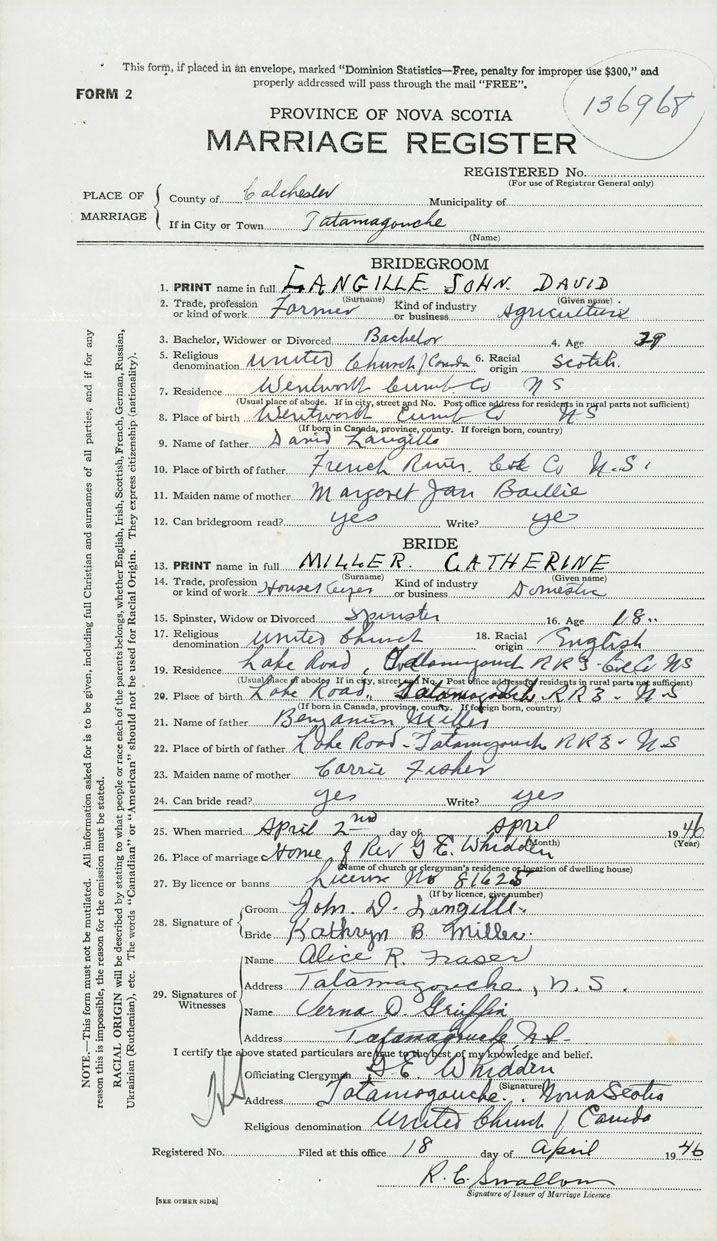 This form, if placed in an envelope, marked "Dominion Statistics—Free, penalty for improper use $300," and
properly addressed will pass through the mail "FREE".
FORM 2
136968
PROVINCE OF NOVA SCOTIA
MARRIAGE REGISTER
REGISTERED No.
(For use of Registrar General only)
PLACE OF MARRIAGE
County of Colchester Municipality of
If in City or Town Tatamagouche
(Name)
BRIDEGROOM
1. PRINT name in full LANGILLE JOHN DAVID
(Surname) (Given name)
2. Trade, profession or kind of work Farmer Kind of industry or business Agriculture
3. Bachelor, Widower or Divorced Bachelor 4. Age 39
5. Religious denomination United Church / Canada 6. Racial origin Scotch.
7. Residence Wentworth Cumb Co N S
(Usual place of abode. If in city, street and No. Post office address for residents in rural parts not sufficient)
8. Place of birth Wentworth Cumb Co N S
(If born in Canada, province, county. If foreign born, country)
9. Name of father David Langille
10. Place of birth of father French River. Col Co N.S.
11. Maiden name of mother Margaret Jan Baillie
12. Can bridegroom read? yes Write? yes
BRIDE
13. PRINT name in full MILLER. CATHERINE
(Surname) (Given name)
14. Trade, profession or kind of work Housekeeper Kind of industry or business Domestic
15. Spinster, Widow or Divorced Spinster 16. Age 18
17. Religious denomination United Church 18. Racial origin English
19. Residence Lake Road, Tatamagouch RR3 - Col Co NS
(Usual place of abode. If in city, street and No. Post office address for residents in rural parts not sufficient)
20. Place of birth Lake Road, Tatamagouch RR3 - NS
(If born in Canada, province, county. If foreign born, country)
21. Name of father Benjamin Miller
22. Place of birth of father Lake Road - Tatamagouch RR3 - NS
23. Maiden name of mother Carrie Fisher
24. Can bride read? yes Write? yes
25. When married April 2nd day of April 1946
(Month) (Year)
26. Place of marriage Home of Rev G E. Whidden
(Name of church or clergyman's residence or location of dwelling house)
27. By licence or banns License No 81625
(If by licence, give number)
28. Signature of
Groom John. D. Langille.
Bride Kathryn B. Miller.
29. Signatures of Witnesses
Name Alice R. Fraser
Address Tatamagouche, N.S.
Name Verna D Griffin
Address Tatamagouche N.S.
I certify the above stated particulars are true to the best of my knowledge and belief.
Officiating Clergyman G. E. Whidden
(Signature)
Address Tatamagouche. Nova Scotia
Religious denomination United Church / Canada
Registered No. Filed at this office 18 day of April 1946
R. C. Smallow
Signature of Issuer of Marriage Licence
[SEE OTHER SIDE]
NOTE.—This form must not be mutilated. All information asked for is to be given, including full Christian and surnames of all parties, and if for any
reason this is impossible, the reason for the omission must be stated.
RACIAL ORIGIN will be described by stating to what people or race each of the parents belongs, whether English, Irish, Scottish, French, German, Russian,
Ukrainian (Ruthenian), etc. The words "Canadian" or "American" should not be used for Racial Origin. They express citizenship (nationality).